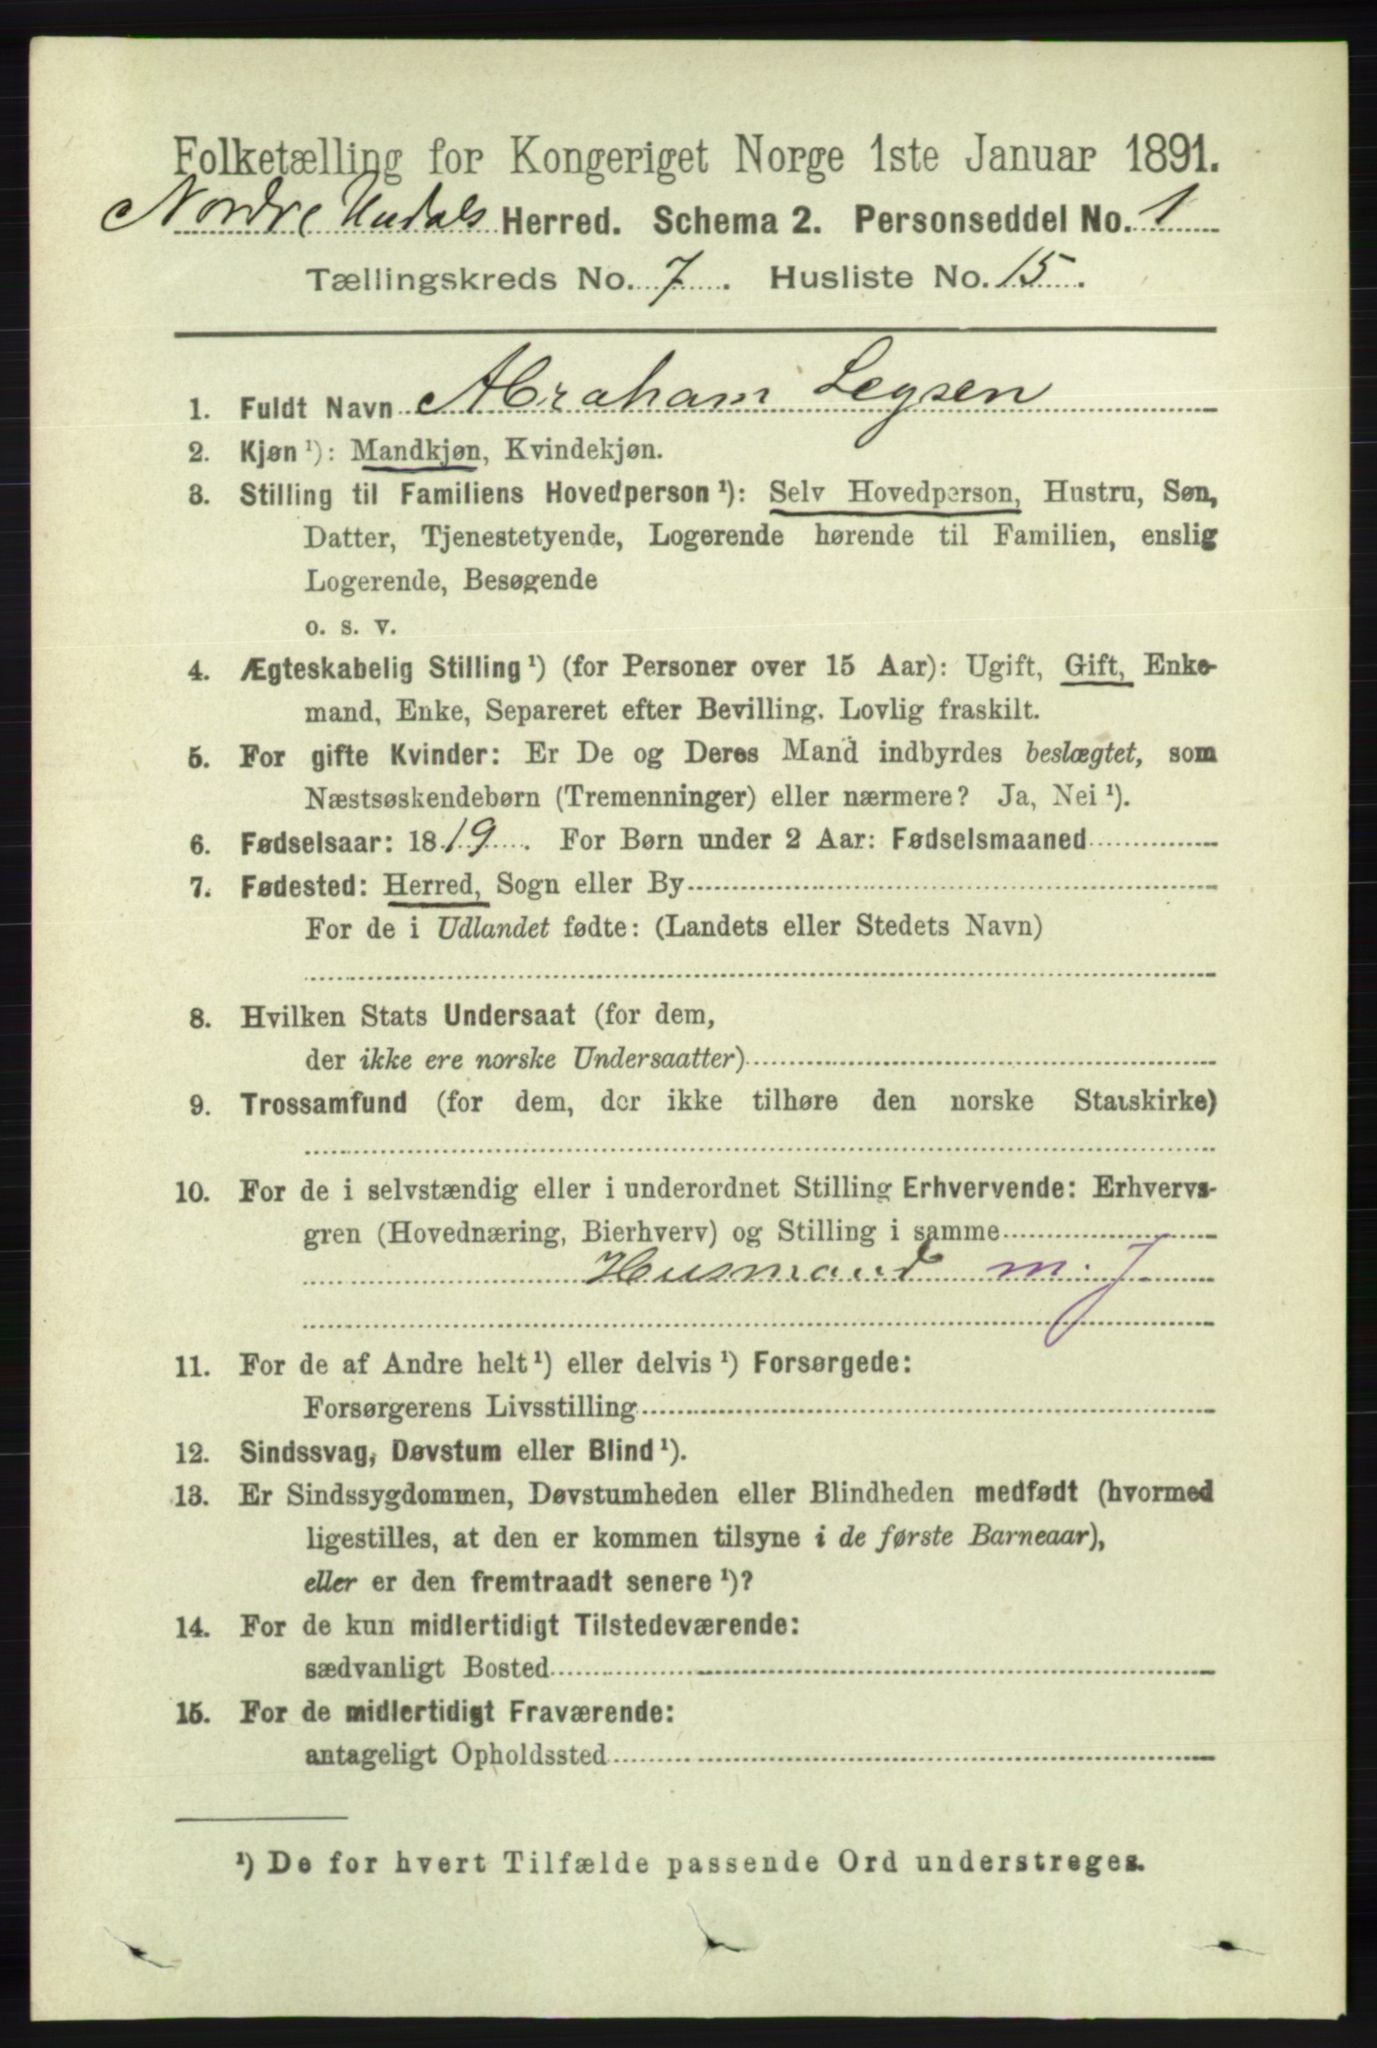 Folketælling for Kongeriget Norge 1ste Januar 1891.
Nordre Undals Herred. Schema 2. Personseddel No. 1
Tællingskreds No. 7. Husliste No. 15.
1. Fuldt Navn Abraham Legsen
2. Kjøn¹): Mandkjøn, Kvindekjøn.
3. Stilling til Familiens Hovedperson¹): Selv Hovedperson, Hustru, Søn,
Datter, Tjenestetyende, Logerende hørende til Familien, enslig
Logerende, Besøgende
o. s. v.
4. Ægteskabelig Stilling¹) (for Personer over 15 Aar): Ugift, Gift, Enke-
mand, Enke, Separeret efter Bevilling. Lovlig fraskilt.
5. For gifte Kvinder: Er De og Deres Mand indbyrdes beslægtet, som
Næstsøskendebørn (Tremenninger) eller nærmere? Ja, Nei¹).
6. Fødselsaar: 1819. For Børn under 2 Aar: Fødselsmaaned
7. Fødested: Herred, Sogn eller By
For de i Udlandet fødte: (Landets eller Stedets Navn)
8. Hvilken Stats Undersaat (for dem,
der ikke ere norske Undersaatter)
9. Trossamfund (for dem, der ikke tilhøre den norske Statskirke)
10. For de i selvstændig eller i underordnet Stilling Erhvervende: Erhvervs-
gren (Hovednæring, Bierhverv) og Stilling i samme
Husmand m. J
11. For de af Andre helt¹) eller delvis¹) Forsørgede:
Forsørgerens Livsstilling
12. Sindssvag, Døvstum eller Blind¹).
13. Er Sindssygdommen, Døvstumheden eller Blindheden medfødt (hvormed
ligestilles, at den er kommen tilsyne i de første Barneaar),
eller er den fremtraadt senere¹)?
14. For de kun midlertidigt Tilstedeværende:
sædvanligt Bosted
15. For de midlertidigt Fraværende:
antageligt Opholdssted
¹) De for hvert Tilfælde passende Ord understreges.